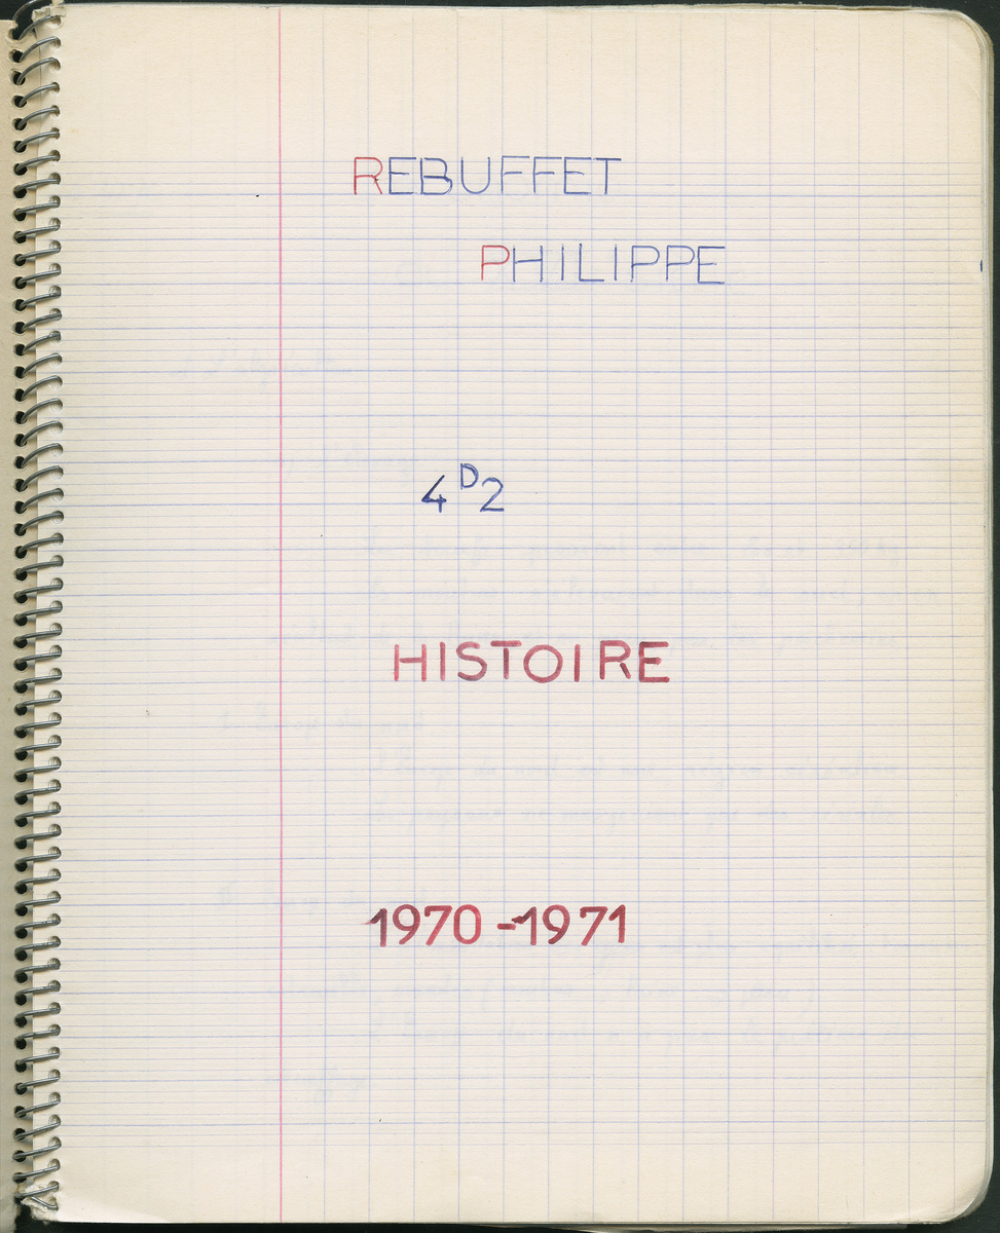 REBUFFET
PHILIPPE
4D2
HISTOIRE
1970-1971